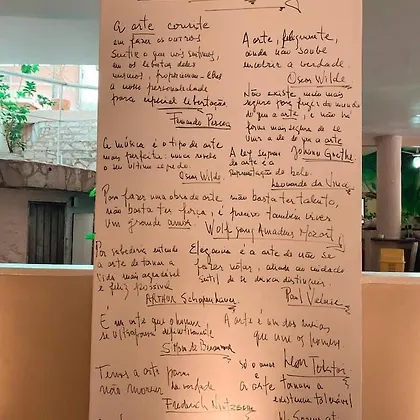 A arte consiste
em fazer os outros
sentir o que nós sentimos,
em os libertar deles
mesmos, propondo-lhes
a nossa personalidade
para especial libertação
Fernando Pessoa
A arte, felizmente,
ainda não soube
encobrir a verdade.
Oscar Wilde
Não existe meio mais
seguro para fugir do mundo
do que a arte, e não há
forma mais segura de se
unir a ele do que a arte
Johann Goethe
A música é o tipo de arte
mais perfeita: nunca revela
o seu último segredo.
Oscar Wilde
A lei suprema
da arte é a
representação do belo.
Leonardo da Vinci
Para fazer uma obra de arte não basta ter talento,
não basta ter força, é preciso também viver
um grande amor.
Wolfgang Amadeus Mozart
Por sabedoria entendo
a arte de tornar a
vida mais agradável
e feliz possível
Arthur Schopenhauer
Elegância é a arte de não se
fazer notar, aliada ao cuidado
sutil de se deixar distinguir.
Paul Valéry
É na arte que o homem
se ultrapassa definitivamente
Simone de Beauvoir
A arte é um dos meios
que une os homens.
Leon Tolstoi
Temos a arte para
não morrer da verdade
Friedrich Nietzsche
só o amor e
a arte tornam a
existência tolerável
W. Somerset